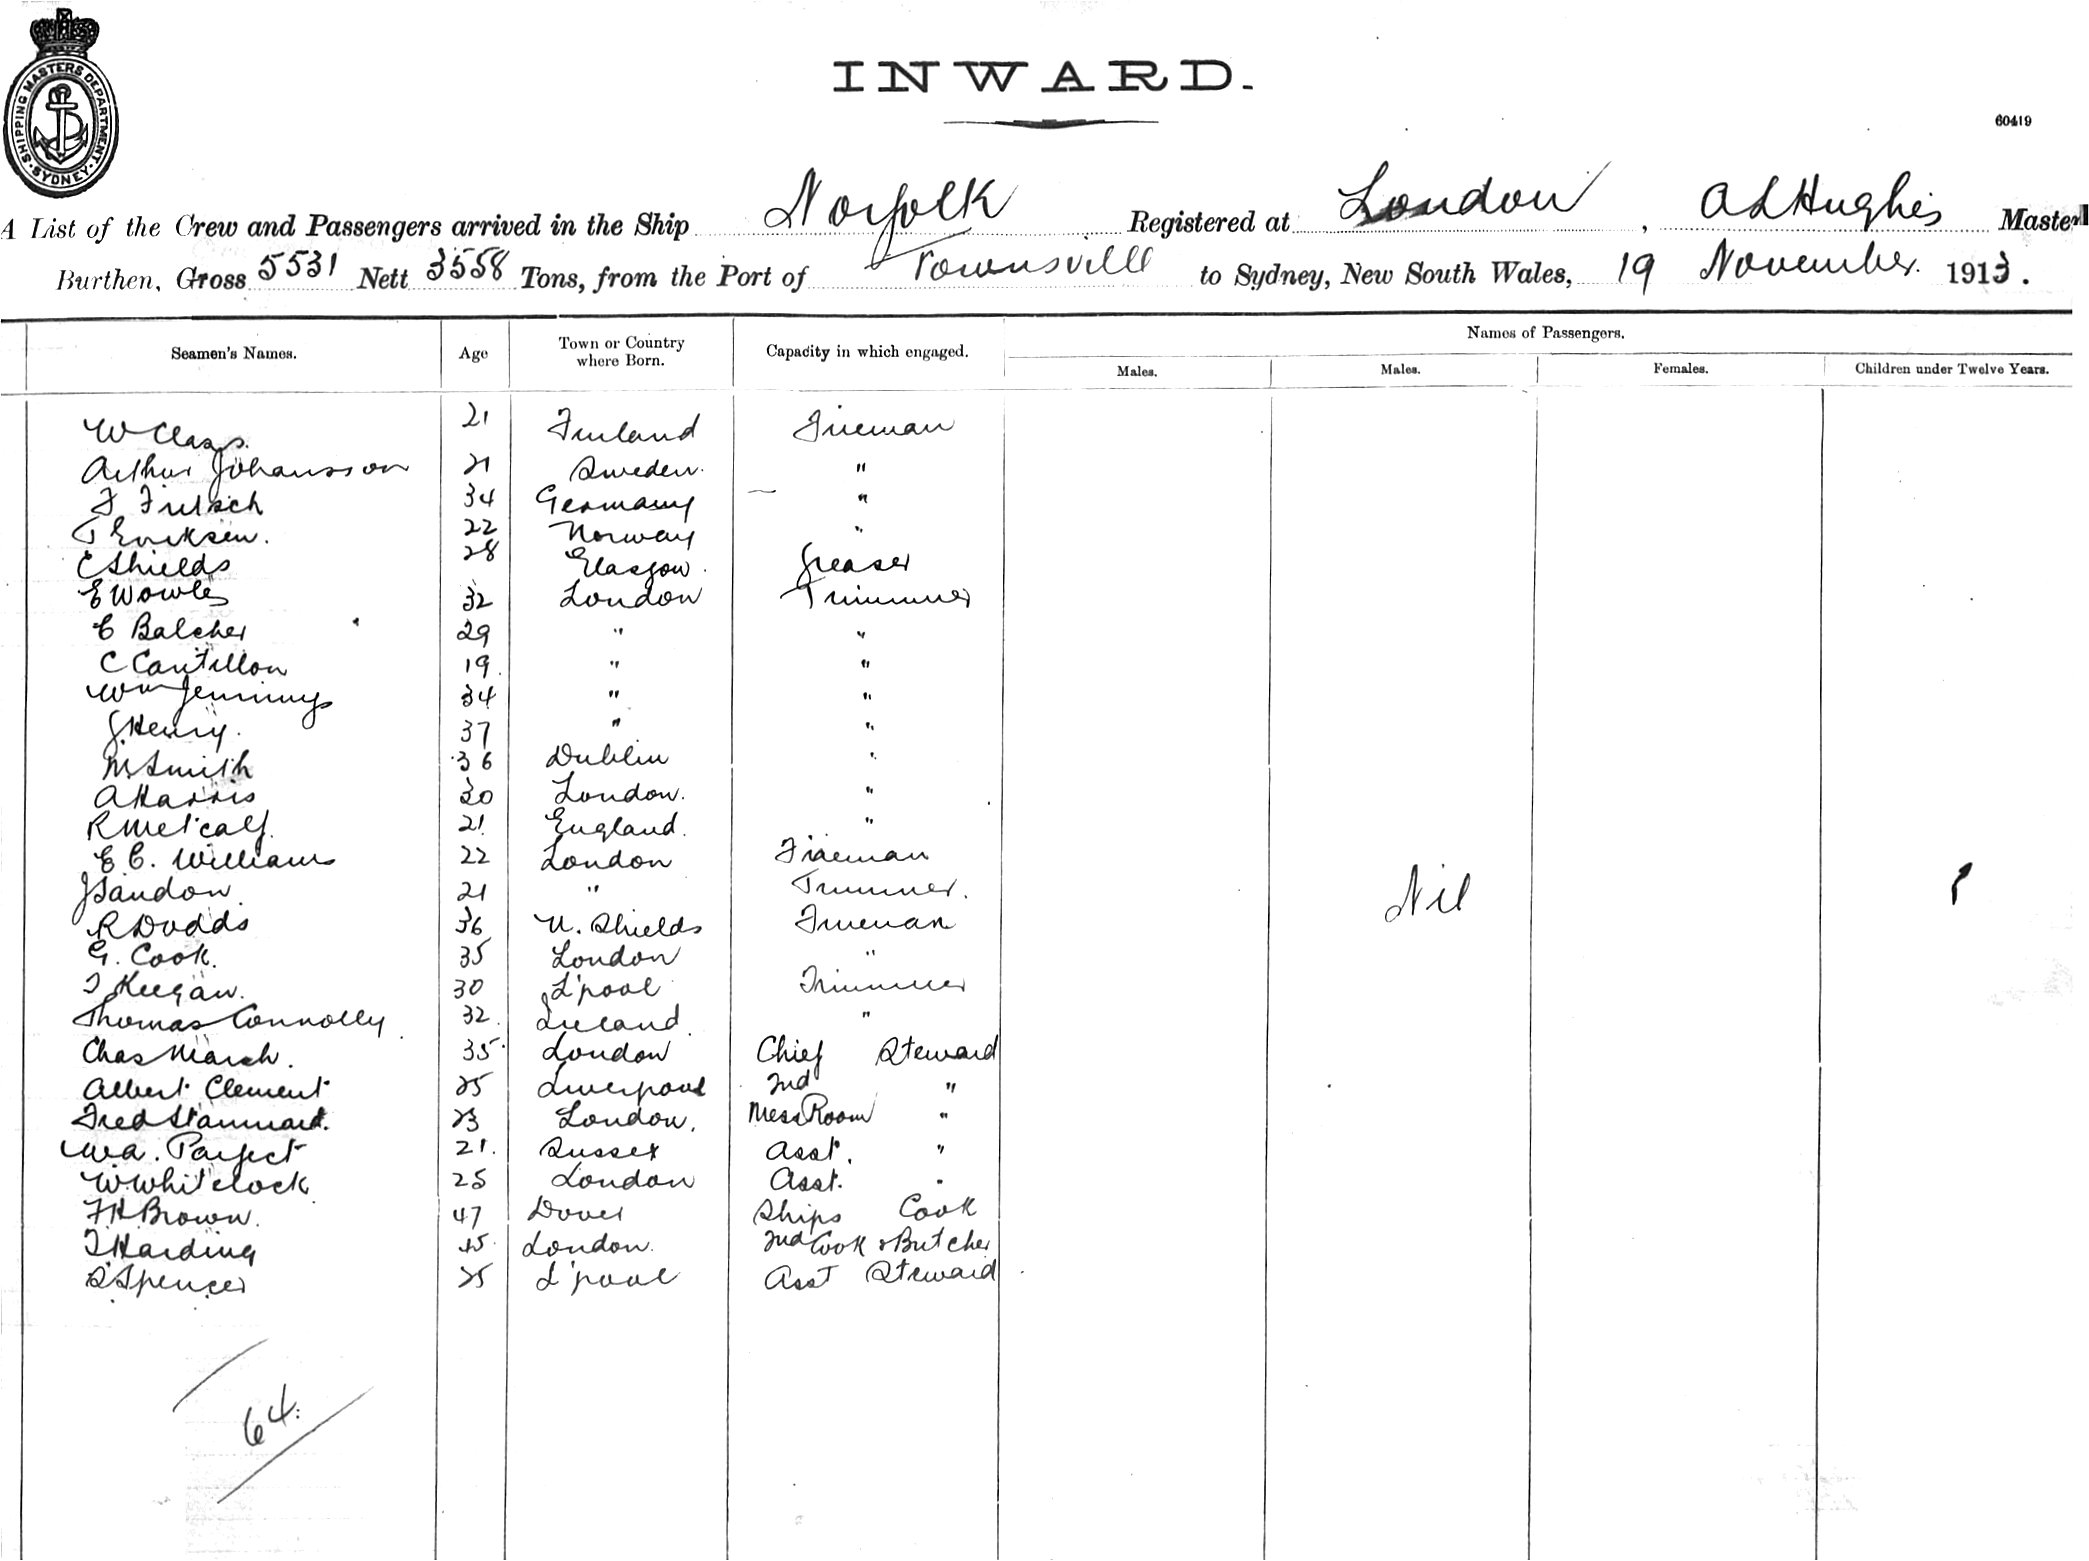 SHIPPING MASTERS DEPARTMENT · SYDNEY ·
INWARD.
60419
A List of the Crew and Passengers arrived in the Ship Norfolk Registered at London, A L Hughes Master
Burthen, Gross 5531 Nett 3558 Tons, from the Port of Townsville to Sydney, New South Wales, 19 November 1913.
Names of Passengers.
Seamen's Names. Age Town or Country where Born. Capacity in which engaged. Males. Males. Females. Children under Twelve Years.
W Claas. 21 Finland Fireman
Arthur Johansson 21 Sweden. "
F Fritsch 34 Germany "
T Eriksen. 22 Norway "
C Shields 28 Glasgow. Greaser
E Wowles 32 London Trimmer
C Balcher 29 " "
C Cantillon 19 " "
Wm Jennings 34 " "
J Henry. 37 " "
M Smith 36 Dublin "
A Harris 30 London. "
R Metcalf. 21 England. "
E C. Williams 22 London Fireman
J Sandon. 21 " Trimmer.
Nil
R Dodds 36 N. Shields Fireman
G. Cook. 35 London "
T Keegan. 30 L'pool Trimmer
Thomas Connolly 32. Ireland. "
Chas March. 35 London Chief Steward
Albert Clement 25 Liverpool 2nd "
Fred Stannard. 23 London. Mess Room "
W A. Parfect 21. Sussex Asst. "
W. Whitelock 25 London Asst. "
F H Brown. 47 Dover Ships Cook
T Harding 45 London. 2nd Cook & Butcher
S Spencer 25 L'pool Asst Steward
64